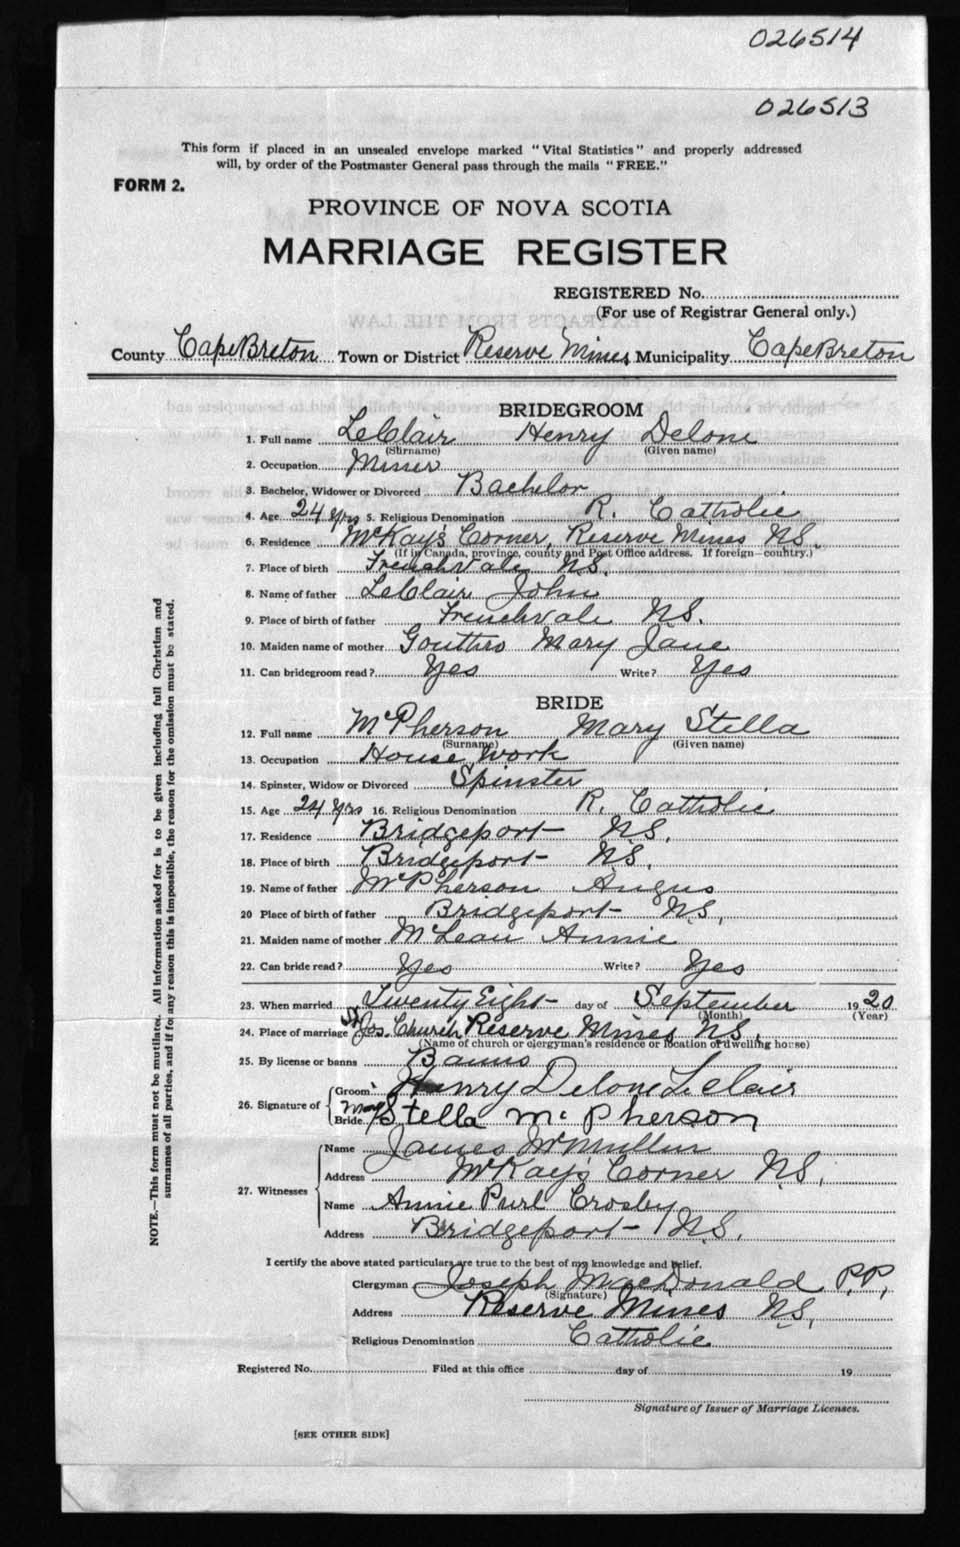 026514
026513
This form if placed in an unsealed envelope marked "Vital Statistics" and properly addressed
will, by order of the Postmaster General pass through the mails "FREE."
FORM 2.
PROVINCE OF NOVA SCOTIA
MARRIAGE REGISTER
REGISTERED No.
(For use of Registrar General only.)
County Cape Breton Town or District Reserve Mines Municipality Cape Breton
BRIDEGROOM
1. Full name LeClair Henry Delone
(Surname) (Given name)
2. Occupation Miner
3. Bachelor, Widower or Divorced Bachelor
4. Age 24 yrs 5. Religious Denomination R. Catholic
6. Residence McKay's Corner, Reserve Mines N.S.
(If in Canada, province, county and Post Office address. If foreign—country.)
7. Place of birth Frenchvale N.S.
8. Name of father LeClair John
9. Place of birth of father Frenchvale N.S.
10. Maiden name of mother Gouthro Mary Jane
11. Can bridegroom read? Yes Write? Yes
BRIDE
12. Full name McPherson Mary Stella
(Surname) (Given name)
13. Occupation House Work
14. Spinster, Widow or Divorced Spinster
15. Age 24 yrs 16. Religious Denomination R. Catholic
17. Residence Bridgeport N.S.
18. Place of birth Bridgeport N.S.
19. Name of father McPherson Angus
20 Place of birth of father Bridgeport N.S.
21. Maiden name of mother McLean Annie
22. Can bride read? Yes Write? Yes
23. When married Twenty Eight day of September 1920
(Month) (Year)
24. Place of marriage St Jos. Church Reserve Mines N.S.
(Name of church or clergyman's residence or location of dwelling house)
25. By license or banns Banns
26. Signature of Groom Henry Delone Leclair
Bride Mary Stella McPherson
27. Witnesses Name James McMullin
Address McKay's Corner N.S.
Name Annie Purl Crosby
Address Bridgeport N.S.
I certify the above stated particulars are true to the best of my knowledge and belief.
Clergyman Joseph MacDonald P.P.
(Signature)
Address Reserve Mines N.S.
Religious Denomination Catholic
Registered No. Filed at this office day of 19
Signature of Issuer of Marriage Licenses.
[SEE OTHER SIDE]
NOTE.—This form must not be mutilated. All information asked for is to be given including full Christian and
surnames of all parties, and if for any reason this is impossible, the reason for the omission must be stated.